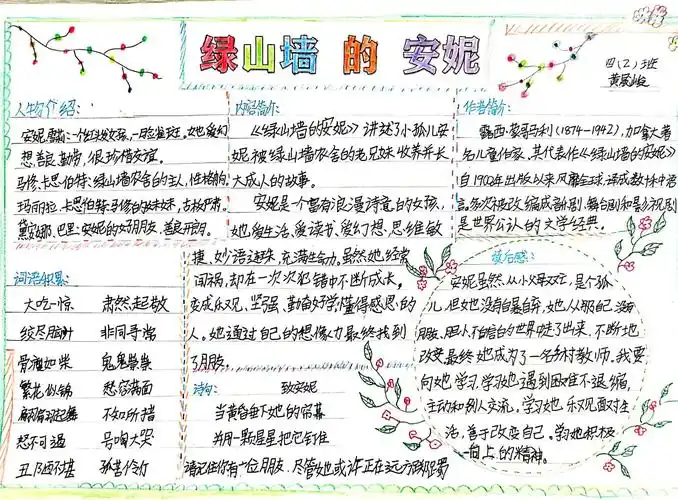 绿山墙的安妮
四(2)班
人物介绍:
安妮·雪莉:一个红发女孩,一脸雀斑。她爱幻
想善良、勤劳,很珍惜友谊。
马修·卡思伯特:绿山墙农舍的主人,性格腼
玛丽拉·卡思伯特:马修的妹妹,古板严肃。
黛安娜·巴里:安妮的好朋友,善良开朗。
内容简介:
《绿山墙的安妮》讲述了小孤儿安
妮被绿山墙农舍的老兄妹收养并长
大成人的故事。
安妮是一个富有浪漫诗意的女孩,
她爱生活、爱读书、爱幻想、思维敏
捷、妙语连珠、充满生命力。虽然她经常
闯祸,却在一次次犯错中不断成长。
变成乐观、坚强、勤奋好学懂得感恩的
人。她通过自己的想像力最终找到
了朋友。
作者简介:
露西·蒙哥马利(1874-1942),加拿大著
名儿童作家,其代表作《绿山墙的安妮》
自1908年出版以来风靡全球,译成数十种语
言,多次被改编成音乐剧、舞台剧和是电视剧
是世界公认的文学经典。
词语积累:
大吃一惊 肃然起敬
绞尽脑汁 非同寻常
骨瘦如柴 鬼鬼祟祟
繁花似锦 愁容满面
翩翩起舞 不知所措
怒不可遏 号啕大哭
丑陋不堪 孤苦伶仃
诗句: 致安妮
当黄昏垂下她的帘幕
并用一颗星星把它钉住
请记住你有一位朋友,尽管她或许正在远方
读后感:
安妮虽然从小父母双亡,是个孤
儿,但她没有自暴自弃,她从那自己没有
朋友、胆小、不自信的世界中走了出来,不断地
改变,最终她成为了一名乡村教师。我要
向她学习,学习她遇到困难不退缩,
主动和别人交流,学习她乐观面对生
活,善于改变自己,学习她积极
向上的精神。